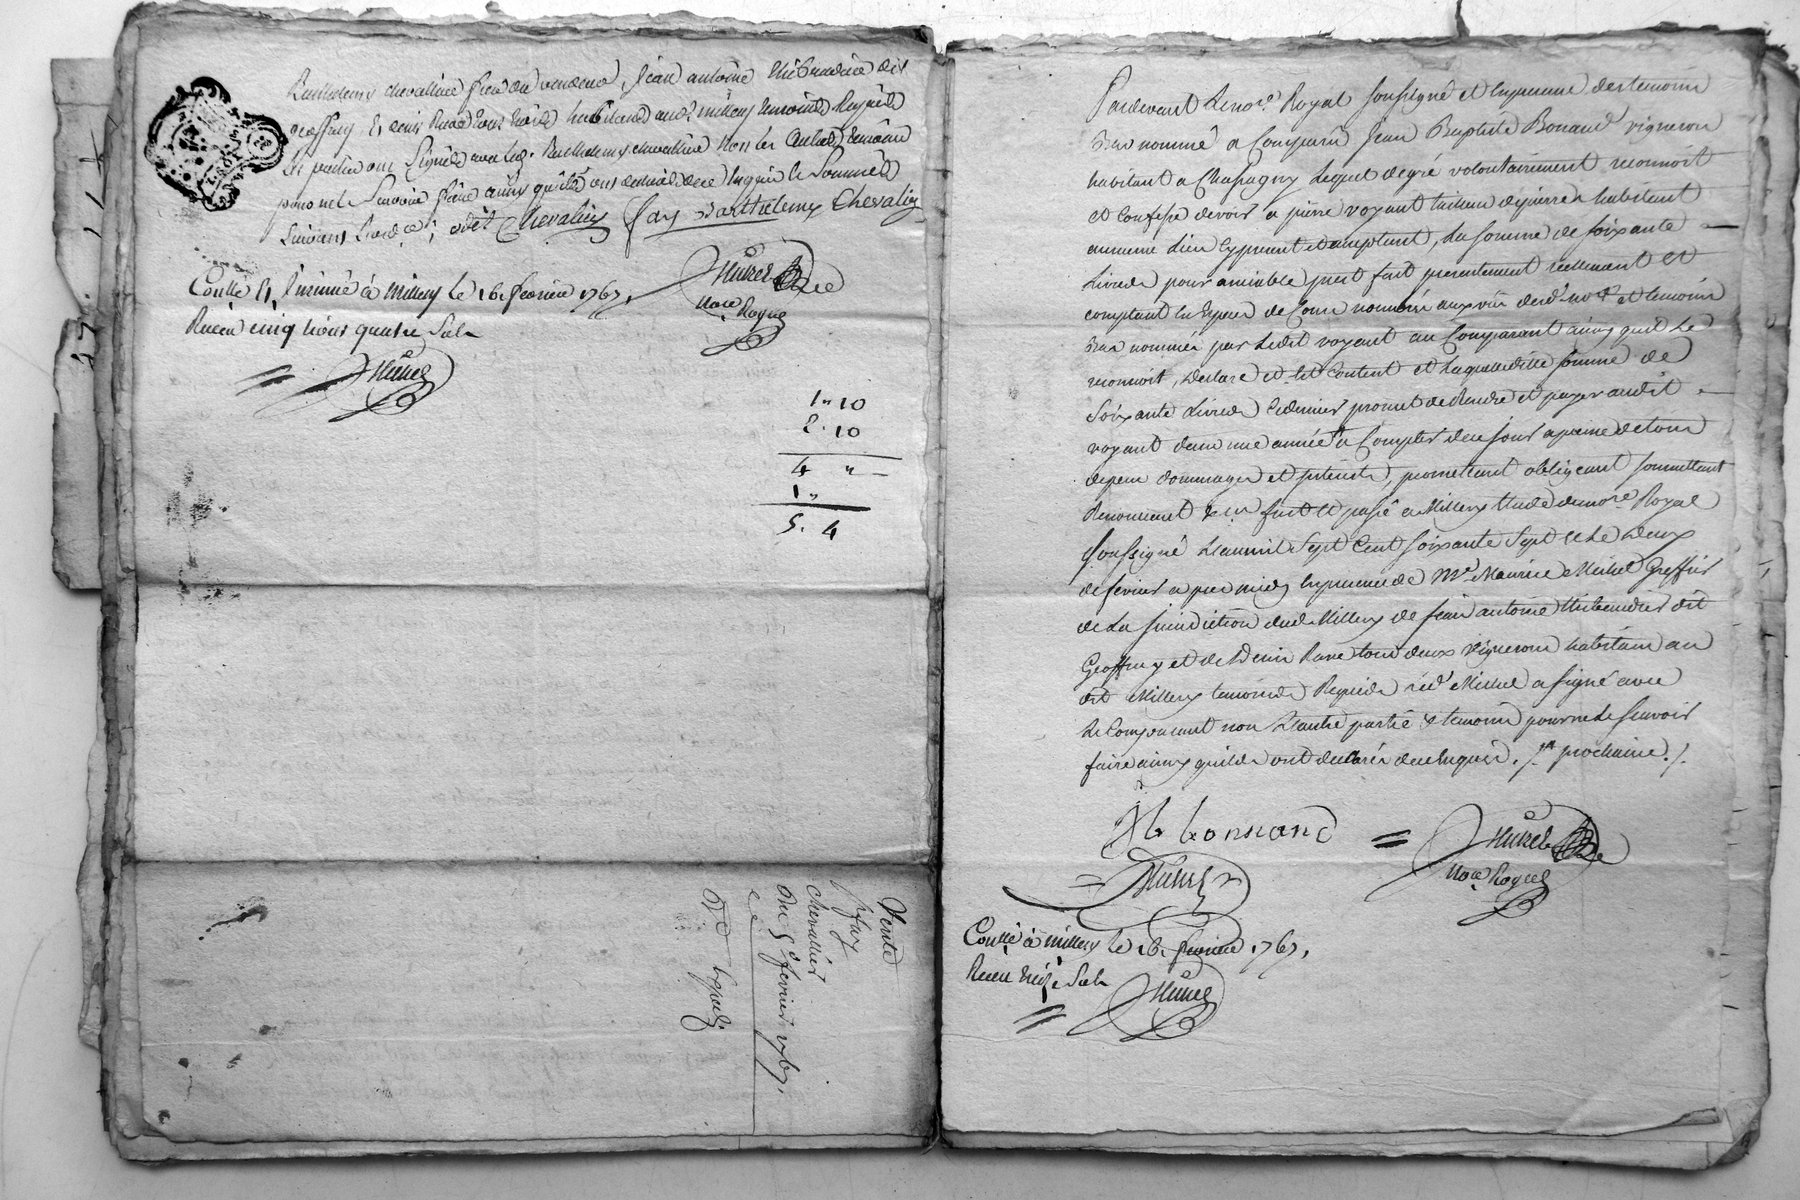 Barthelemy chevallier frere du vendeur, jean antoine thibaudier dit
geoffray et denis Rave tous trois habitans aud. millery temoins Requis
les parties ont signés avec led. Barthelemy chevallier non les autres temoins
pour ne le scavoir faire ainsy qu'ils ont declaré de ce enquis et sommés
suivans l'ord.ce
Chevalier fay Barthelemy Chevalier
Collé et insinué à millery le 16. fevrier 1767.
Receu cinq livres quatre sols
Michel
No.re Royal
Michel
1 " 10
2 . 10
4 "
1 "
5 . 4
Vente
fay
chevallier
du 5 fevrier 1767.
Pardevant le no.re Royal soussigné et en presence des temoins
bas nommé a Comparu Jean Baptiste Bonand vigneron
habitant a Chassagny lequel de gré volontairement reconnoit
et Confesse devoir a pierre voyant tailleur de pierres habitant
au meme lieu cy present et acceptant, la somme de soixante
Livres pour amiable prest fait presentement reellement et
comptant en Especes de Cours nombrée au vû dud. no.re et temoins
bas nommés par ledit voyant au Comparant ainsy qu'il le
reconnoit, declare et s'et Content et laquelle ditte somme de
soixante Livres ce dernier promet de Rendre et payer audit
voyant dans une année a Compter de ce jour a peine de tous
depens dommages et interets, promettant obligeant soumettant
Renonceant &.a fait et passé a Millery etude du no.re Royal
soussigné L'an mil sept Cent soixante sept et le deux
de fevrier apres midy en presence de M.e Maurice Michel Greffier
de la jurisdiction dud. Millery de jean antoine thibaudier dit
Geoffray et de Denis Rave tous deux vignerons habitans au
dit Millery temoins Requis led. Michel a signé avec
le Comparant non l'autre partie et temoin pour ne le scavoir
faire ainsy qu'ils ont declarés de ce enquis ./. prochaine ./.
Jb bonnand
Michel
No.re Royal
Michel
Collé à millery le 16. fevrier 1767.
Receu treize sols
Michel